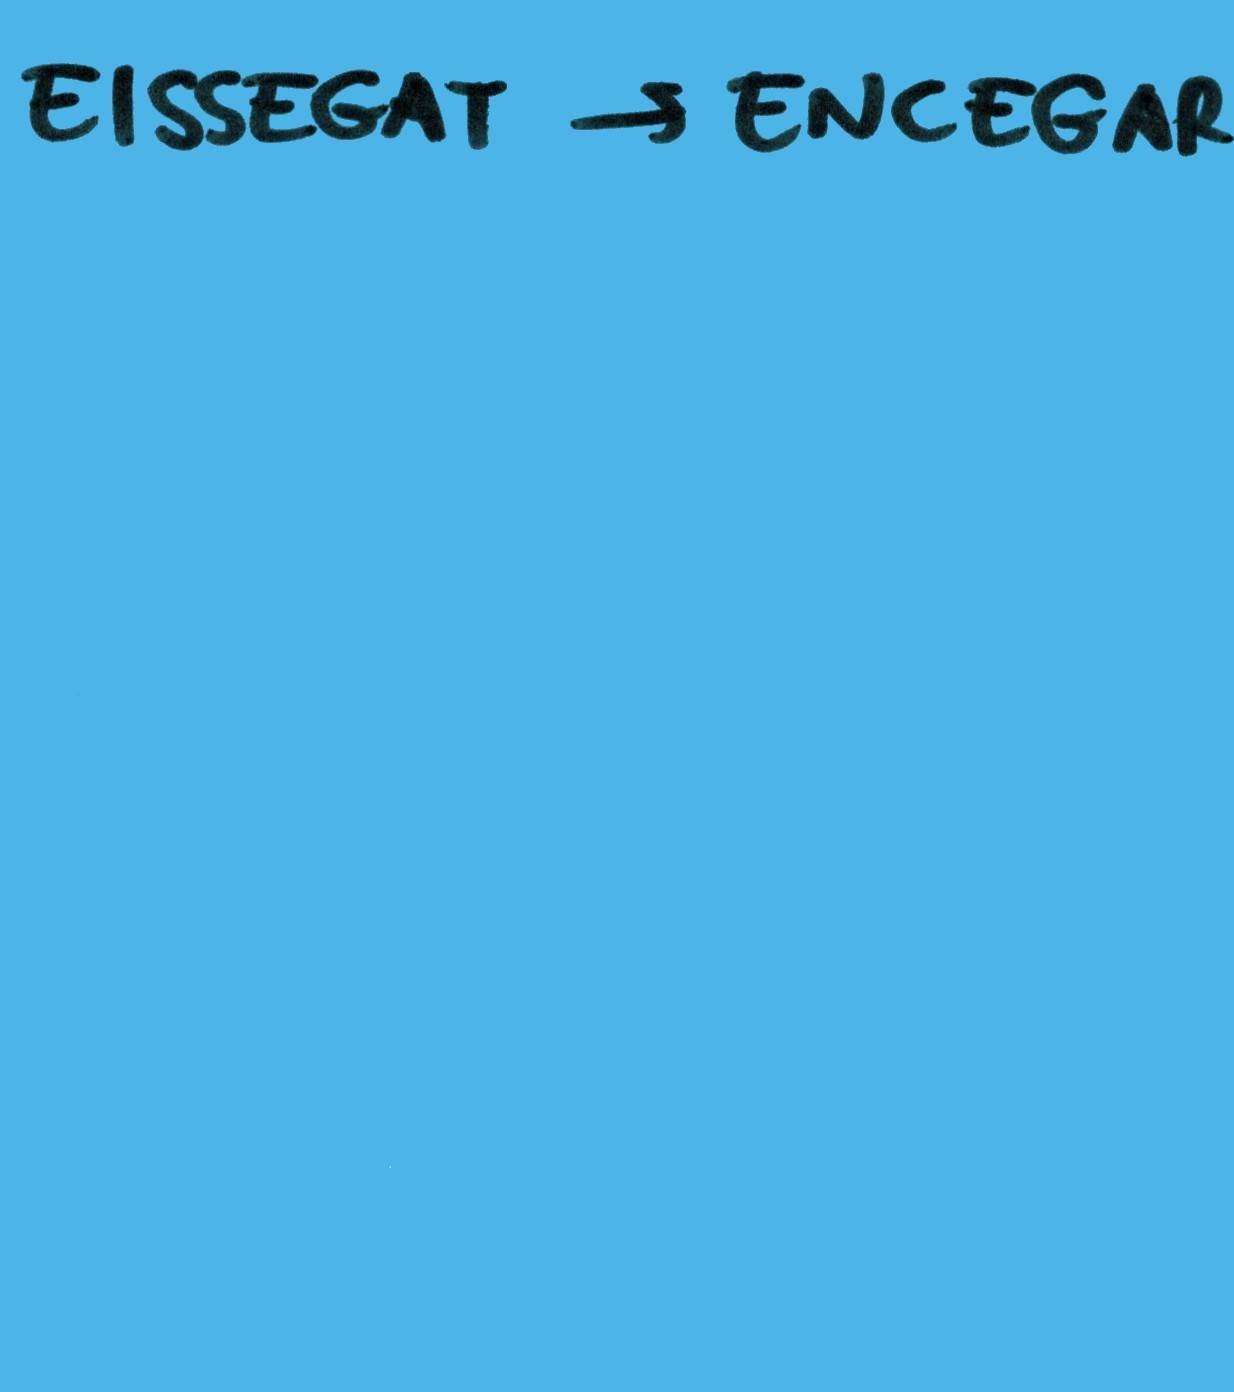 EISSEGAT → ENCEGAR